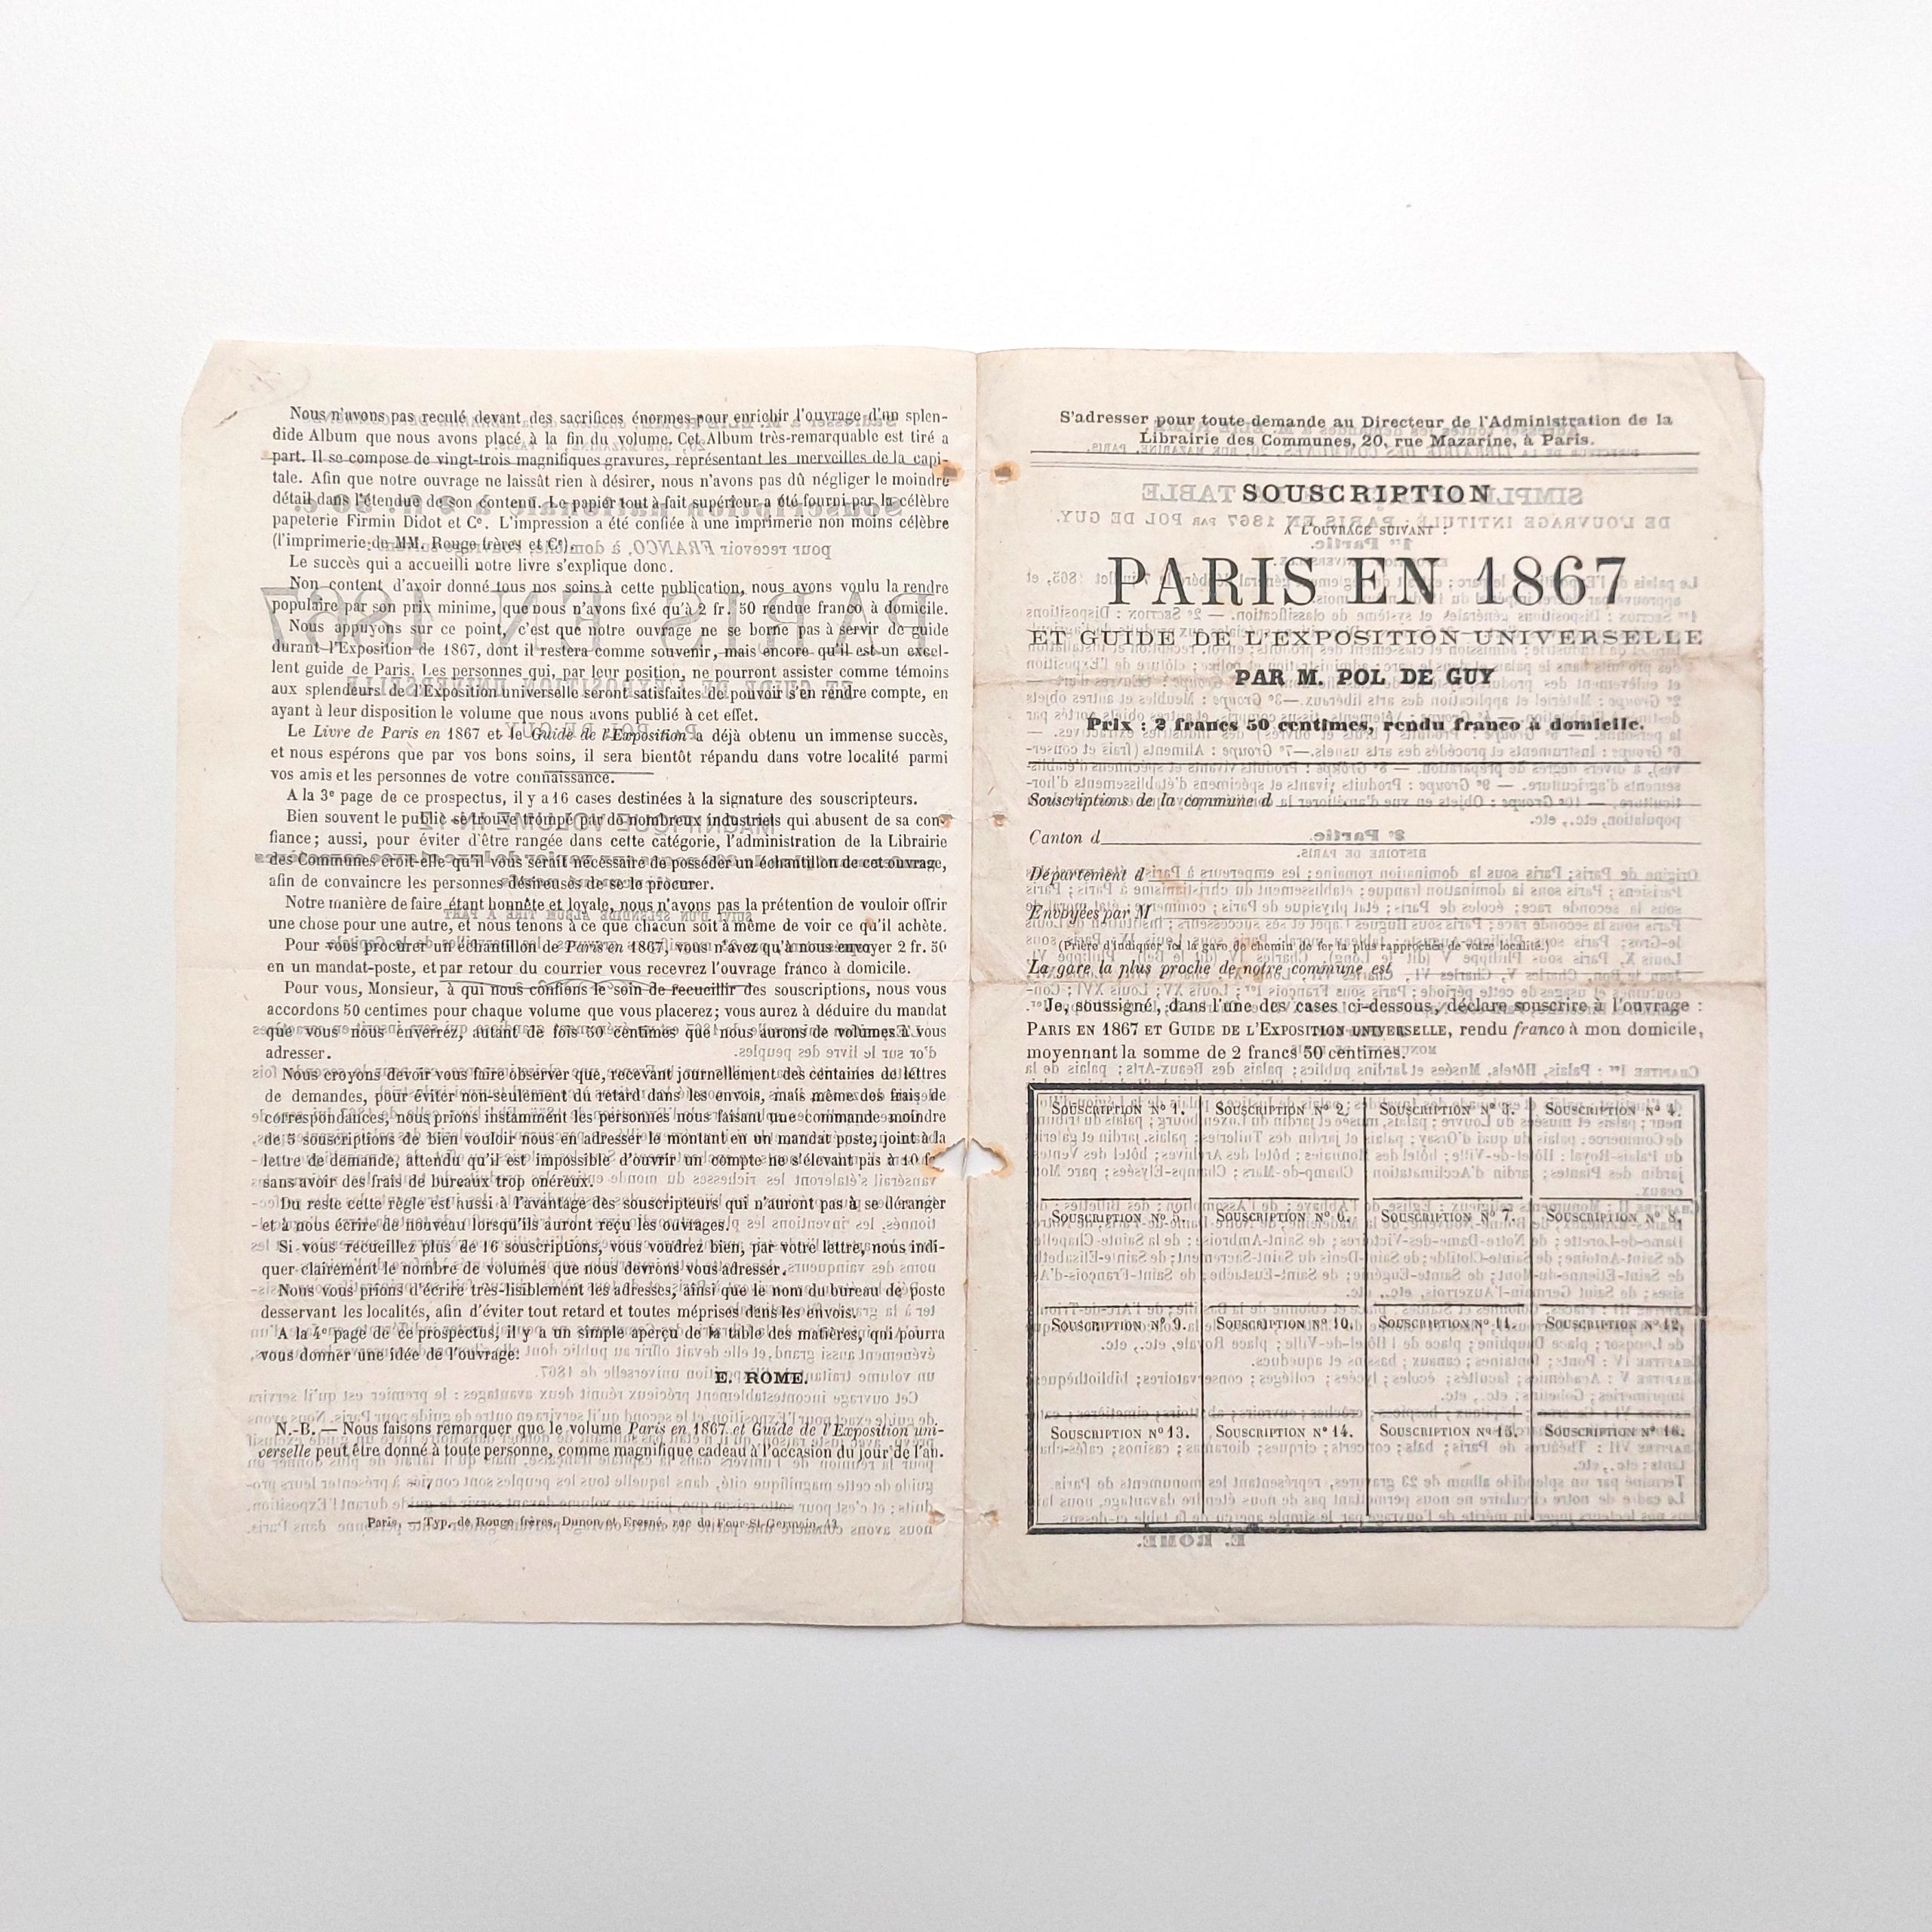 Nous n'avons pas reculé devant des sacrifices énormes pour enrichir l'ouvrage d'un splen-
dide Album que nous avons placé à la fin du volume. Cet Album très-remarquable est tiré a
part. Il se compose de vingt-trois magnifiques gravures, représentant les merveilles de la capi-
tale. Afin que notre ouvrage ne laissât rien à désirer, nous n'avons pas dû négliger le moindre
détail dans l'étendue de son contenu. Le papier tout à fait supérieur a été fourni par la célèbre
papeterie Firmin Didot et Ce. L'impression a été confiée à une imprimerie non moins célèbre
(l'imprimerie de MM. Rouge frères et Ce).
Le succès qui a accueilli notre livre s'explique donc.
Non content d'avoir donné tous nos soins à cette publication, nous avons voulu la rendre
populaire par son prix minime, que nous n'avons fixé qu'à 2 fr. 50 rendue franco à domicile.
Nous appuyons sur ce point, c'est que notre ouvrage ne se borne pas à servir de guide
durant l'Exposition de 1867, dont il restera comme souvenir, mais encore qu'il est un excel-
lent guide de Paris. Les personnes qui, par leur position, ne pourront assister comme témoins
aux splendeurs de l'Exposition universelle seront satisfaites de pouvoir s'en rendre compte, en
ayant à leur disposition le volume que nous avons publié à cet effet.
Le Livre de Paris en 1867 et le Guide de l'Exposition a déjà obtenu un immense succès,
et nous espérons que par vos bons soins, il sera bientôt répandu dans votre localité parmi
vos amis et les personnes de votre connaissance.
A la 3e page de prospectus, il y a 16 cases destinées à la signature des souscripteurs.
Bien souvent le public se trouve trompé par de nombreux industriels qui abusent de sa con-
fiance; aussi, pour éviter d'être rangée dans cette catégorie, l'administration de la Librairie
des Communes croit-elle qu'il vous serait nécessaire de posséder un échantillon de cet ouvrage,
afin de convaincre les personnes désireuses de se le procurer.
Notre manière de faire étant honnête et loyale, nous n'avons pas la prétention de vouloir offrir
une chose pour une autre, et nous tenons à ce que chacun soit à même de voir ce qu'il achète.
Pour vous procurer un échantillon de Paris en 1867, vous n'avez qu'à nous envoyer 2 fr. 50
en un mandat-poste, et par retour du courrier vous recevrez l'ouvrage franco à domicile.
Pour vous, Monsieur, à qui nous confions le soin de recueillir des souscriptions, nous vous
accordons 50 centimes pour chaque volume que vous placerez; vous aurez à déduire du mandat
que vous nous enverrez, autant de fois 50 centimes que nous aurons de volumes à vous
adresser.
Nous croyons devoir vous faire observer que, recevant journellement des centaines de lettres
de demandes, pour éviter non-seulement du retard dans les envois, mais même des frais de
correspondances, nous prions instamment les personnes nous faisant une commande moindre
de 5 souscriptions de bien vouloir nous en adresser le montant en un mandat poste, joint à la
lettre de demande, attendu qu'il est impossible d'ouvrir un compte ne s'élevant pas à 10 fr
sans avoir des frais de bureaux trop onéreux.
Du reste cette règle est aussi à l'avantage des souscripteurs qui n'auront pas à se déranger
et à nous écrire de nouveau lorsqu'ils auront reçu les ouvrages.
Si vous recueillez plus de 16 souscriptions, vous voudrez bien, par votre lettre, nous indi-
quer clairement le nombre de volumes que nous devrons vous adresser.
Nous vous prions d'écrire très-lisiblement les adresses, ainsi que le nom du bureau de poste
desservant les localités, afin d'éviter tout retard et toutes méprises dans les envois.
A la 4e page de ce prospectus, il y a un simple aperçu de la table des matières, qui pourra
vous donner une idée de l'ouvrage:
E. ROME.
N.-B. — Nous faisons remarquer que le volume Paris en 1867 et Guide de l'Exposition uni-
verselle peut être donné à toute personne, comme magnifique cadeau à l'occasion du jour de l'an.
Paris. — Typ. de Rouge frères, Dunon et Fresné, rue du Four-St-Germain, 43
S'adresser pour toute demande au Directeur de l'Administration de la
Librairie des Communes, 20, rue Mazarine, à Paris.
SOUSCRIPTION
A L'OUVRAGE SUIVANT :
PARIS EN 1867
ET GUIDE DE L'EXPOSITION UNIVERSELLE
PAR M. POL DE GUY
Prix : 2 francs 50 centimes, rendu franco à domicile.
Souscriptions de la commune d
Canton d
Département d
Envoyées par M
(Prière d'indiquer ici la gare de chemin de fer la plus rapprochée de votre localité.)
La gare la plus proche de notre commune est
Je, soussigné, dans l'une des cases ci-dessous, déclare souscrire à l'ouvrage :
PARIS EN 1867 ET GUIDE DE L'EXPOSITION UNIVERSELLE, rendu franco à mon domicile,
moyennant la somme de 2 francs 50 centimes.
SOUSCRIPTION No 1. SOUSCRIPTION No 2. SOUSCRIPTION No 3. SOUSCRIPTION No 4.
SOUSCRIPTION No 5. SOUSCRIPTION No 6. SOUSCRIPTION No 7. SOUSCRIPTION No 8.
SOUSCRIPTION No 9. SOUSCRIPTION No 10. SOUSCRIPTION No 11. SOUSCRIPTION No 12.
SOUSCRIPTION No 13. SOUSCRIPTION No 14. SOUSCRIPTION No 15. SOUSCRIPTION No 16.